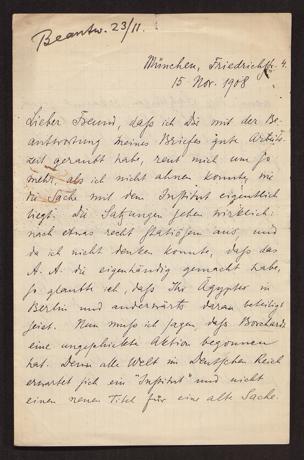 Beantw. 23/11.
München, Friedrichstr. 4.
15 Nov. 1908
Lieber Freund, daß ich Dir mit der Be-
antwortung meines Briefes gute Arbeits-
zeit geraubt habe, reut mich um so
mehr, als ich nicht ahnen konnte, wie
die Sache mit dem Institut eigentlich
liegt; die Satzungen sehen wirklich
nach etwas recht aus, und
da ich nicht denken konnte, daß das
A. A. die eigenhändig gemacht habe,
so glaubte ich, daß Ihr Ägypter in
Berlin und anderwärts daran beteiligt
seiet. Nun muß ich sagen, daß Borchardt
eine ungeschickte Aktion begonnen
hat. Denn alle Welt im Deutschen Reich
erwartet sich ein "Institut" und nicht
einen neuen Titel für eine alte Sache.